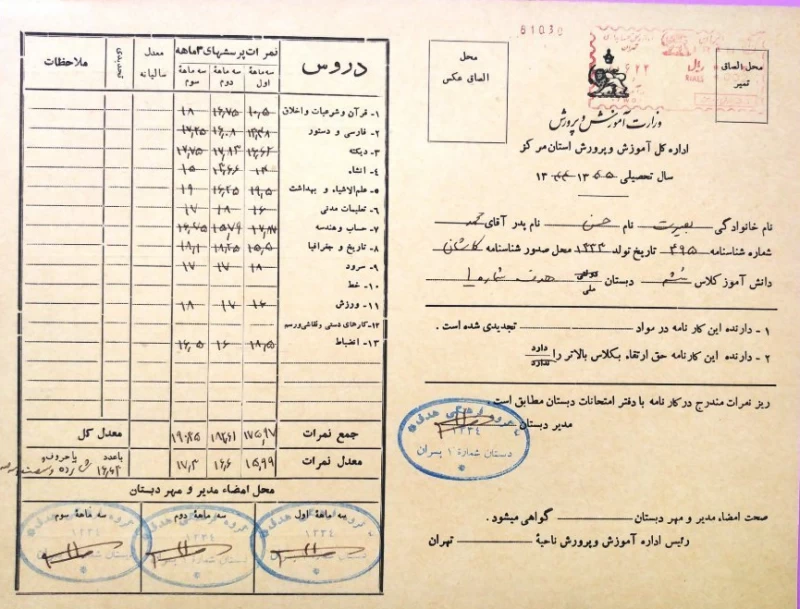 61030
محل
الصاق عکس
محل الصاق
تمبر
ریال
وزارت آموزش و پرورش
اداره کل آموزش و پرورش استان مرکز
سال تحصیلی ۵۵ ۱۳ - ۴۴ ۱۳
نام خانوادگی بصیرت نام حسن نام پدر آقای محمد
شماره شناسنامه ۴۹۵ تاریخ تولد ۱۳۳۴ محل صدور شناسنامه کاشان
دانش آموز کلاس ششم دبستان دولتی ملی هدف شماره ۱
۱ - دارنده این کارنامه در مواد تجدیدی شده است .
۲ - دارنده این کارنامه حق ارتقاء بکلاس بالاتر را دارد ندارد
ریز نمرات مندرج در کارنامه با دفتر امتحانات دبستان مطابق است .
مدیر دبستان
گروه فرهنگی هدف
۱۳۳۴
دبستان شمارهٔ ۱ پسران
صحت امضاء مدیر و مهر دبستان گواهی میشود .
رئیس اداره آموزش و پرورش ناحیهٔ تهران
دروس نمرات پرسشهای ۳ ماهه معدل سالیانه تجدیدی ملاحظات
سه ماههٔ اول سه ماههٔ دوم سه ماههٔ سوم
۱- قرآن و شرعیات و اخلاق ۱۰٫۵ ۱۶٫۷۵ ۱۸
۲- فارسی و دستور ۱۶٫۰۸ ۱۷٫۲۵
۳- دیکته ۱۷٫۷۵
۴- انشاء ۱۴ ۱۳٫۶۶ ۱۵
۵- علم‌الاشیاء و بهداشت ۱۹٫۵ ۱۶٫۲۵ ۱۹
۶- تعلیمات مدنی ۱۶ ۱۸ ۱۷
۷- حساب و هندسه ۱۵٫۷۹ ۱۶٫۷۵
۸- تاریخ و جغرافیا ۱۵٫۵ ۱۸٫۲۵ ۱۸٫۱
۹- سرود ۱۸ ۱۷ ۱۷
۱۰- خط
۱۱- ورزش ۱۶ ۱۷ ۱۸
۱۲- کارهای دستی و نقاشی و رسم
۱۳- انضباط ۱۸٫۵ ۱۶ ۱۶٫۵
جمع نمرات ۱۷۵٫۹۷ ۱۸۲٫۶۱ ۱۹۰٫۲۵ معدل کل
معدل نمرات ۱۵٫۹۹ ۱۶٫۶ ۱۷٫۳ باعدد و یا حروف
محل امضاء مدیر و مهر دبستان
سه ماههٔ اول سه ماههٔ دوم سه ماههٔ سوم
گروه فرهنگی هدف گروه فرهنگی هدف گروه فرهنگی هدف
۱۳۳۴ ۱۳۳۴ ۱۳۳۴
دبستان شمارهٔ ۱ پسران دبستان شمارهٔ ۱ پسران دبستان شمارهٔ ۱ پسران